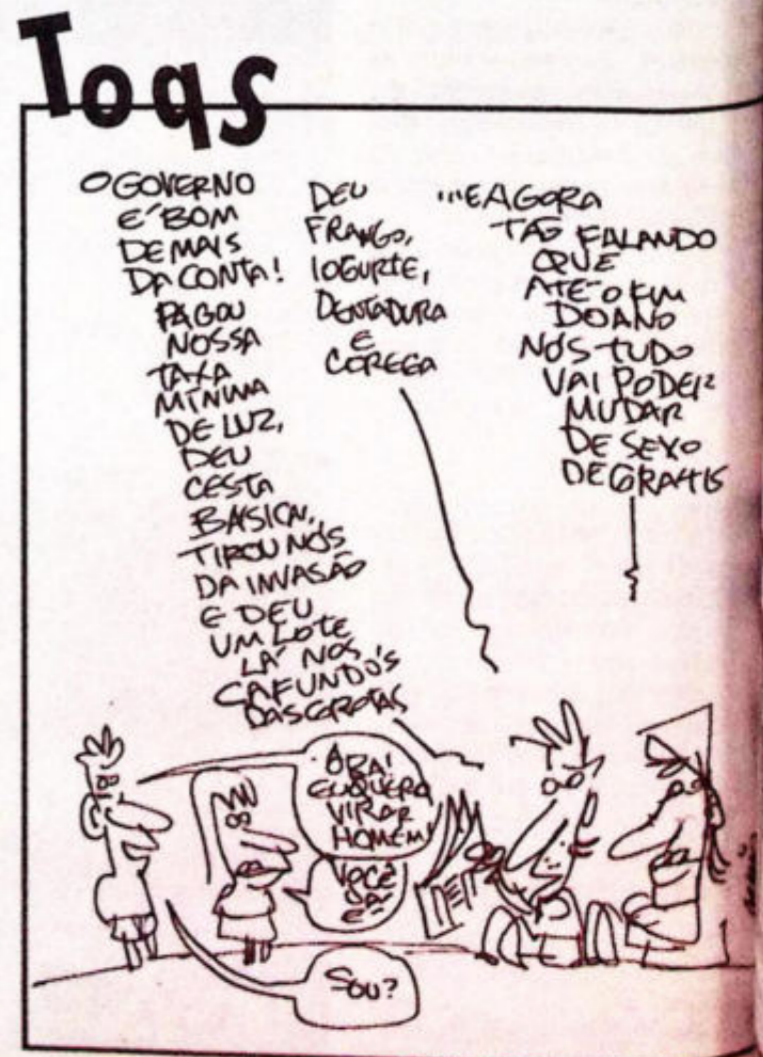 Toqs
O GOVERNO
E' BOM
DEMAIS
DA CONTA!
PAGOU
NOSSA
TAXA
MÍNIMA
DE LUZ,
DEU
CESTA
BÁSICA,
TIROU NÓS
DA INVASÃO
E DEU
UM LOTE
LÁ NOS
CAFUNDÓS
DAS GROTAS
DEU
FRANGO,
IOGURTE,
DENTADURA
E
COREGA
...E AGORA
TÃO FALANDO
QUE
ATÉ O FIM
DO ANO
NÓS TUDO
VAI PODER
MUDAR
DE SEXO
DE GRATIS
ÔRA!
EU QUERO
VIRAR
HOMEM!
VOCÊ
JÁ
É
SOU?